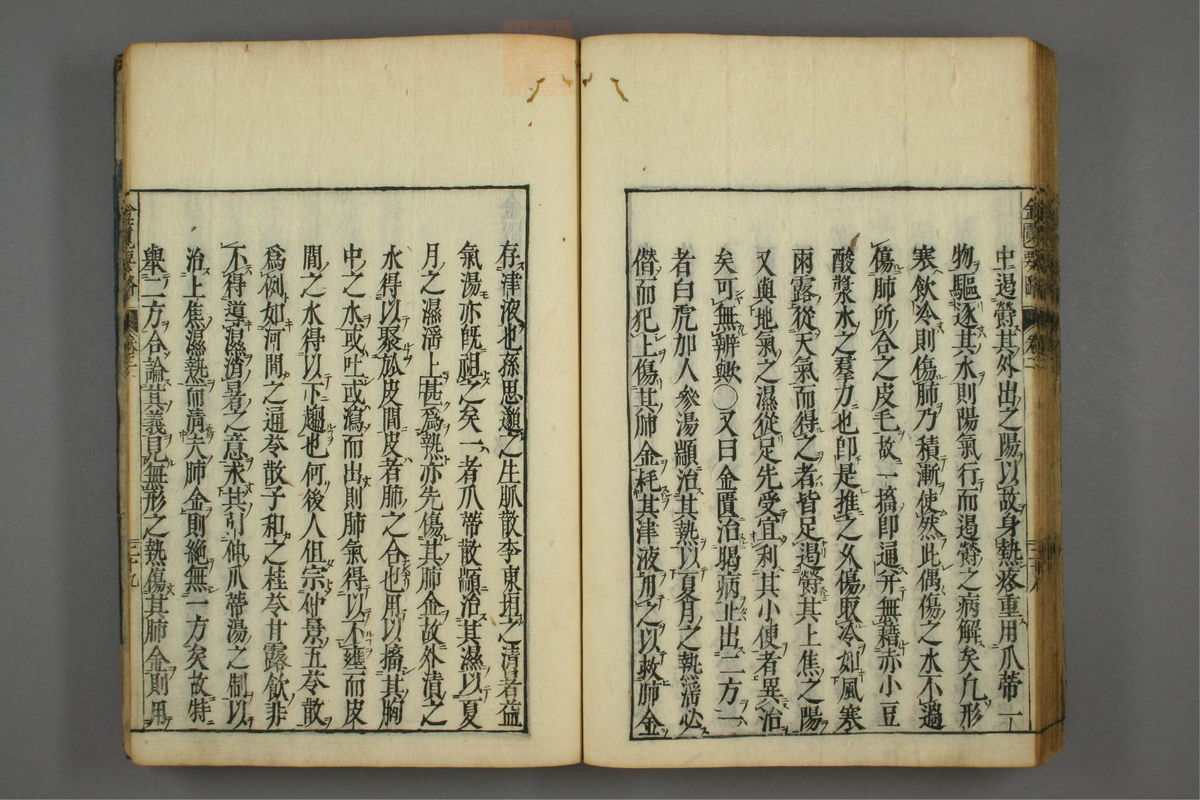 中遏鬱其外出之陽以故身熱疼重用瓜蒂一
物驅逐其水則陽氣行而遏鬱之病解矣凢形
寒飲冷則傷肺乃積漸使然此偶傷之水不過
傷肺所合之皮毛故一搐卽通幷無藉赤小豆
酸漿水之羣力也卽是推之久傷取冷如風寒
雨露從天氣而得之者皆足遏鬱其上焦之陽
又與地氣之濕從足先受宜利其小便者異治
矣可無辨歟〇又曰金匱治暍病止出二方一
者白虎加人參湯顓治其熱以夏月之熱淫必
僭而犯上傷其肺金耗其津液用之以救肺金
存津液也孫思邈之生脉散李東垣之清暑益
氣湯亦旣祖之矣一者瓜蒂散顓治其濕以夏
月之濕淫上甚爲熱亦先傷其肺金故外漬之
水得以聚於皮間皮者肺之合也用以搐其胸
中之水或吐或瀉而出則肺氣得以不壅而皮
間之水得以下趨也何後人但宗仲景五苓散
爲例如河間之通苓散子和之桂苓甘露飲非
不得導濕濟暑之意求其引伸瓜蒂湯之制以
治上焦濕熱而淸夫肺金則絕無一方矣故特
舉二方合論其義見無形之熱傷其肺金則用
金匱要略
卷二
二十九